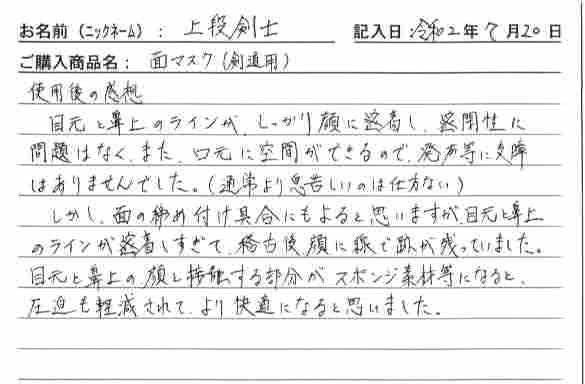 お名前（ニックネーム）： 上段剣士 記入日：令和2年7月20日
ご購入商品名： 面マスク（剣道用）
使用後の感想
目元と鼻上のラインが、しっかり顔に密着し、密閉性に
問題はなく、また、口元に空間ができるので、発声等に支障
はありませんでした。（通常より息苦しいのは仕方ない）
しかし、面の締め付け具合にもよると思いますが、目元と鼻上
のラインが密着しすぎて、稽古後顔に線で跡が残っていました。
目元と鼻上の顔と接触する部分がスポンジ素材等になると、
圧迫も軽減されて、より快適になると思いました。